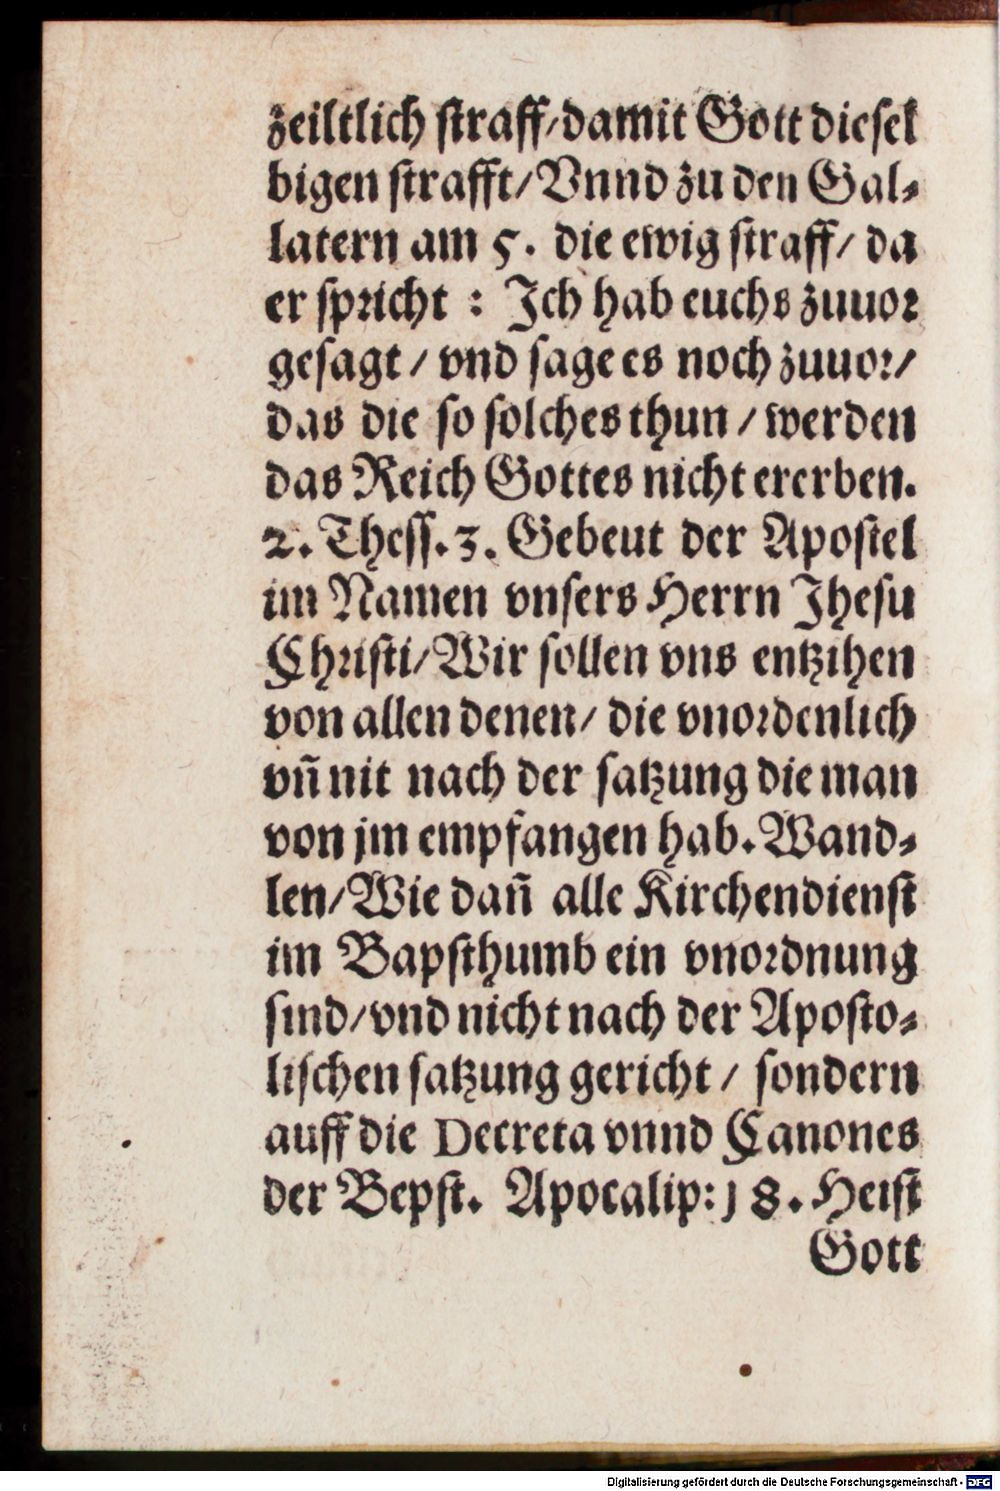 zeiltlich straff/damit Gott diesel
bigen strafft/Vnnd zu den Gal⸗
latern am 5. die ewig straff/ da
er spricht : Ich hab euchs zuuor
gesagt / vnd sage es noch zuuor/
das die so solches thun / werden
das Reich Gottes nicht ererben.
2. Thess. 3. Gebeut der Apostel
im Namen vnsers Herrn Jhesu
Christi/Wir sollen vns entzihen
von allen denen/ die vnordenlich
vñ nit nach der satzung die man
von jm empfangen hab. Wand⸗
len/Wie dañ alle Kirchendienst
im Bapsthumb ein vnordnung
sind/vnd nicht nach der Aposto⸗
lischen satzung gericht / sondern
auff die Decreta vnnd Canones
der Bepst. Apocalip: 18. Heist
Gott
Digitalisierung gefördert durch die Deutsche Forschungsgemeinschaft - DFG